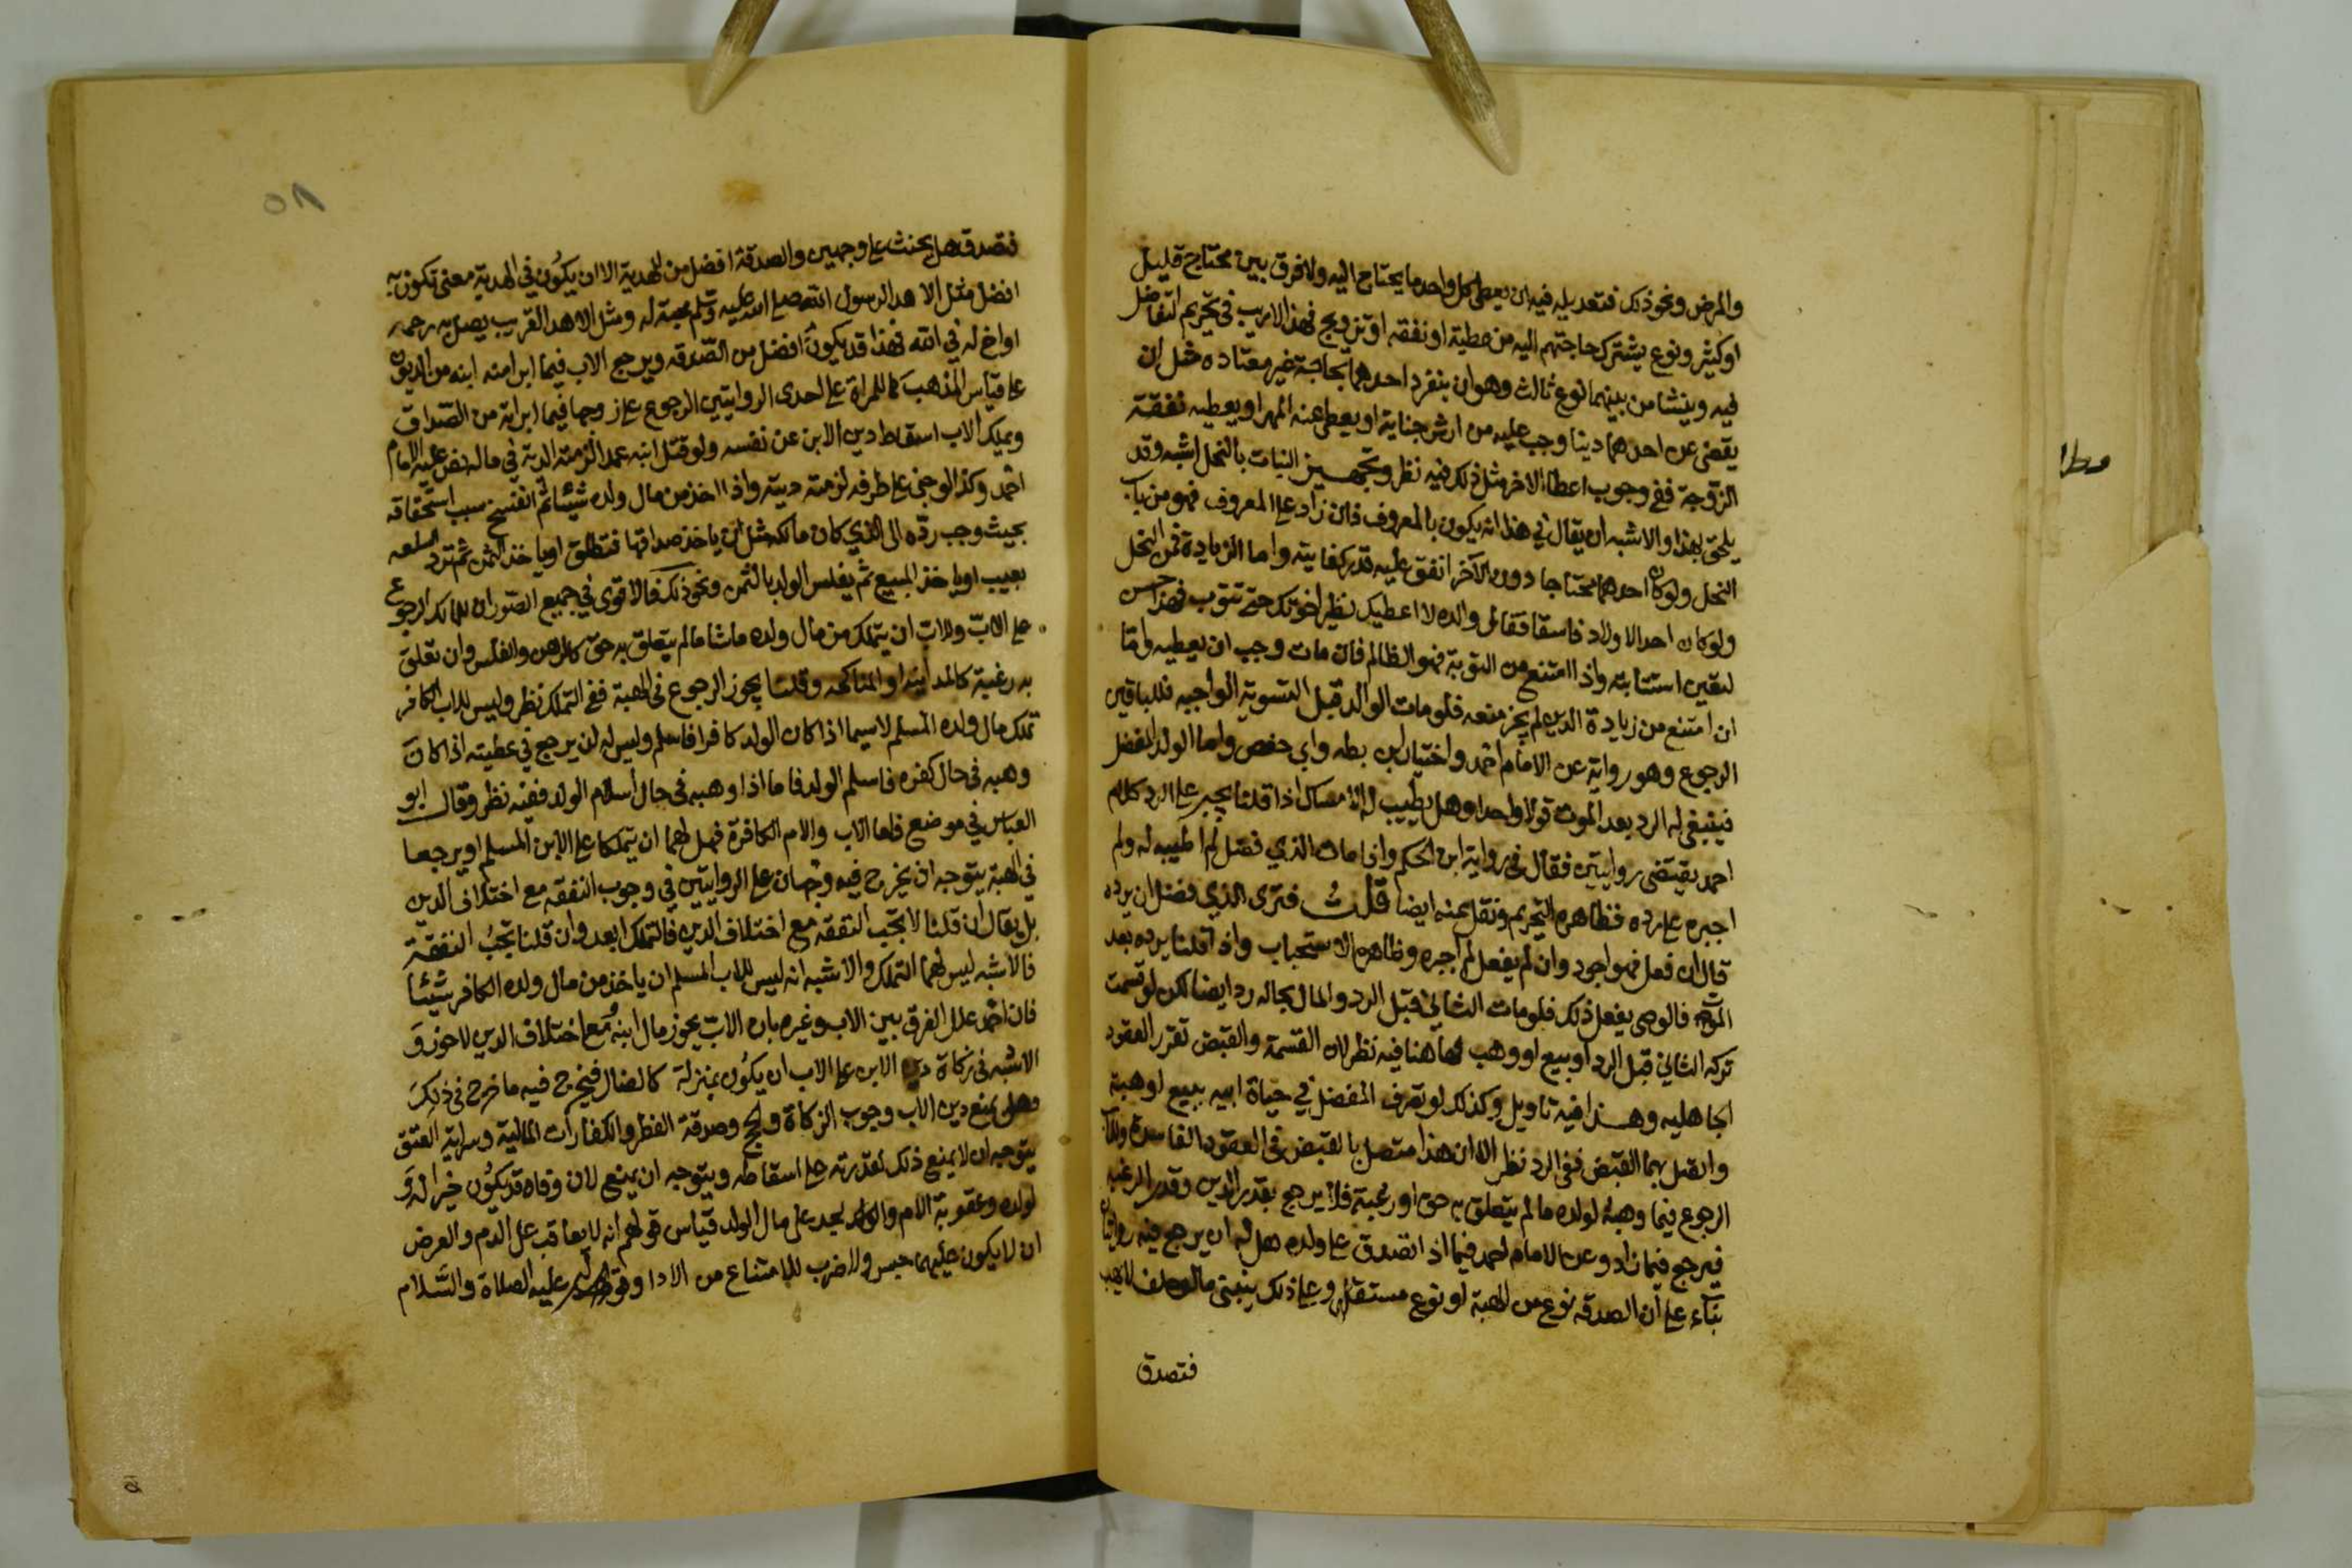 والمرض ونحو ذلك فتعديله فيه ان يعطي كل واحد ما يحتاج اليه ولا فرق بين محتاج قليل
او كثير ونوع يشترك حاجتهم اليه من عطية او نفقه او تزويج فهذا لا ريب في تحريم التفاضل
فيه وينشا من بينهما نوع ثالث وهو ان ينفرد احدهما بحاجة غير معتاده مثل ان
يقضى عن احدهما دينا وجب عليه من ارش جناية او يعطى عنه المهر او يعطيه نفقة
الزوجة ففي وجوب اعطا الاخر مثل ذلك فيه نظر وتجهيز البنات بالنحل اشبه وقد
يلحق بهذا والاشبه ان يقال في هذا انه يكون بالمعروف فان زاد على المعروف فهو من باب
النحل ولو كان احدهما محتاجا دون الآخر انفق عليه قدر كفايته واما الزيادة فمن النحل
ولو كان احد الاولاد فاسقا فقال والده لا اعطيك نظير اخوتك حتى تتوب فهذا حسن
يتعين استتابته واذا امتنع من التوبة فهو الظالم فان مات وجب ان يعطيه واما
ان امتنع من زيادة الدين لم يجز منعه فلو مات الوالد قبل التسوية الواجبه فللباقين
الرجوع وهو رواية عن الامام احمد واختيار ابن بطه وابي حفص واما الولد المفضل
فينبغي له الرد بعد الموت قولا واحدا وهل يطيب له الامساك اذا قلنا يجبر على الرد كلام
احمد يقتضى روايتين فقال في رواية ابن الحكم واذا مات الذي فضل لم اطيبه له ولم
اجبره على رده فظاهره التحريم ونقل عنه ايضا قلت فترى الذي فضل ان يرده
قال ان فعل فهو اجود وان لم يفعل لم اجبره وظاهره الاستحباب واذا قلنا يرده بعد
الموت فالوصي يفعل ذلك فلو مات الثاني قبل الرد والمال بحاله رد ايضا لكن لو قسمت
تركة الثاني قبل الرد او بيع او وهب فهاهنا فيه نظر لان القسمة والقبض تقرر العقود
الجاهليه وهذا فيه تاويل وكذلك لو تصرف المفضل في حياة ابيه ببيع او هبة
واتصل بهما القبض ففي الرد نظر الا ان هذا متصل بالقبض في العقود الفاسدة وللاب
الرجوع فيما وهبه لولده ما لم يتعلق به حق او رغبة فلا يرجع بقدر الدين وقدر الرغبة
فيرجع فيما زاد وعن الامام احمد فيما اذا تصدق على ولده هل له ان يرجع فيه روايتان
بناء على ان الصدقه نوع من الهبة او نوع مستقل وعلى ذلك ينبني ما لو حلف لا يهب
فتصدق
مطلا
٥٨
فتصدق هل يحنث على وجهين والصدقة افضل من الهدية الا ان يكون في الهدية معنى تكون به
افضل مثل الاهدا لرسول الله صلى الله عليه وسلم محبة له ومثل الاهدا القريب يصل به رحمه
او اخ له في الله فهذا قد يكون افضل من الصدقه ويرجع الاب فيما ابرا منه ابنه من الديون
على قياس المذهب كما للمراة على احدى الروايتين الرجوع على زوجها فيما ابراته من الصداق
ويملك الاب اسقاط دين الابن عن نفسه ولو قتل ابنه عمدا لزمته الدية في ماله نص عليه الامام
احمد وكذا لو جنى على طرفه لزمته ديته واذا اخذ من مال ولده شيئا ثم انفسخ سبب استحقاقه
بحيث وجب رده الى الذي كان مالكه مثل ان ياخذ صداقها فتطلق او ياخذ الثمن ثم ترد السلعه
بعيب او ياخذ المبيع ثم يفلس الولد بالثمن ونحو ذلك فالاقوى في جميع الصور ان للمالك الرجوع
على الاب وللاب ان يتملك من مال ولده ماشا ما لم يتعلق به حق كالرهن والفلس وان تعلق
به رغبة كالمداينه او المناكحه وقلنا يجوز الرجوع في الهبة ففي التملك نظر وليس للاب الكافر
تملك مال ولده المسلم لاسيما اذا كان الولد كافرا فاسلم وليس له ان يرجع في عطيته اذا كان
وهبه في حال كفره فاسلم الولد فاما اذا وهبه في حال اسلام الولد ففيه نظر وقال ابو
العباس في موضع فاما الاب والام الكافرة فهل لهما ان يتملكا على الابن المسلم او يرجعا
في الهبة يتوجه ان يخرج فيه وجهان على الروايتين في وجوب النفقه مع اختلاف الدين
بل يقال ان قلنا لا تجب النفقه مع اختلاف الدين فالتملك ابعد وان قلنا تجب النفقة
فالاشبه ليس لهما التملك والاشبه انه ليس للاب المسلم ان ياخذ من مال ولده الكافر شيئا
فان احمد علل الفرق بين الاب وغيره بان الاب يجوز مال ابنه ومع اختلاف الدين لا حوز و
الاشبه في زكاة دين الابن على الاب ان يكون بمنزلة كالضال فيخرج فيه ما خرج في ذلك
وهل يمنع دين الاب وجوب الزكاة والحج وصدقة الفطر والكفارات المالية وسراية العتق
يتوجه ان لا يمنع ذلك لقدرته على اسقاطه ويتوجه ان يمنع لان وفاه قد يكون خيرا له و
لولده وعقوبة الام والولد يحد على مال الولد قياس قولهم انه لا يعاقب على الدم والعرض
ان لا يكون عليهما حبس ولا ضرب للامتناع من الادا وقوله عليه الصلاة والسلام